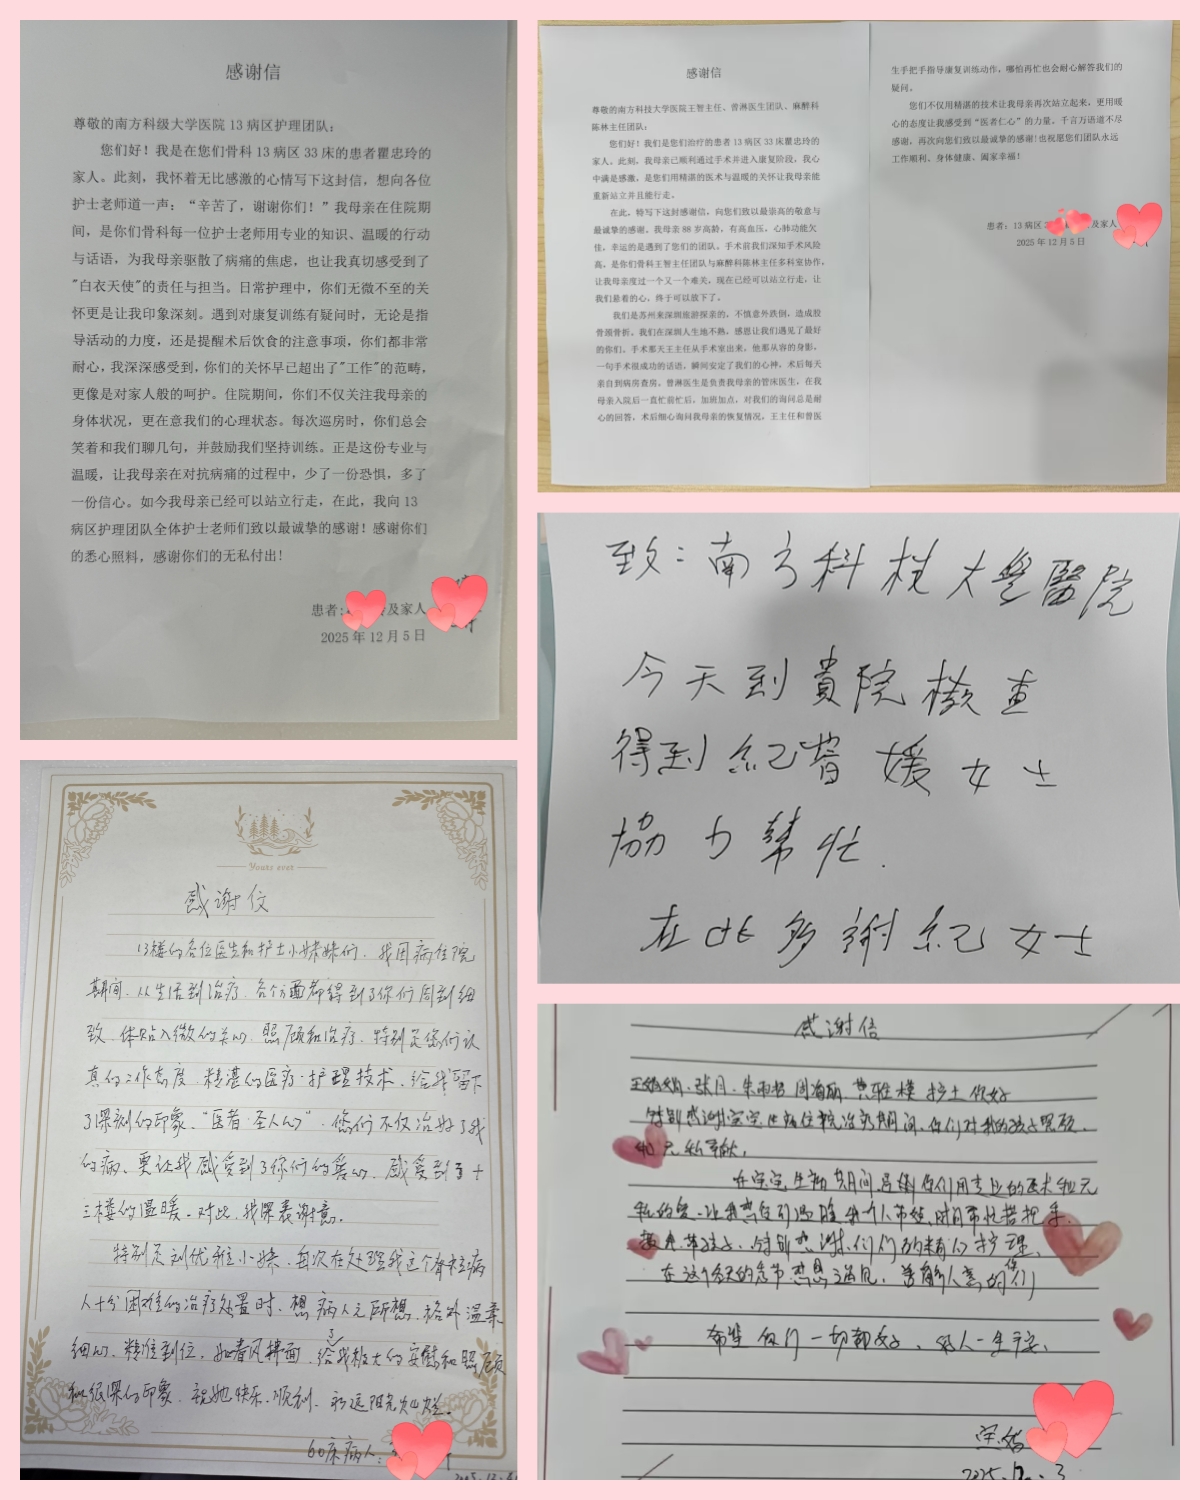 感谢信
尊敬的南方科级大学医院 13 病区护理团队：
您们好！我是在您们骨科 13 病区 33 床的患者瞿忠玲的
家人。此刻，我怀着无比感激的心情写下这封信，想向各位
护士老师道一声：“辛苦了，谢谢你们！”我母亲在住院期
间，是你们骨科每一位护士老师用专业的知识、温暖的行动
与话语，为我母亲驱散了病痛的焦虑，也让我真切感受到了
"白衣天使"的责任与担当。日常护理中，你们无微不至的关
怀更是让我印象深刻。遇到对康复训练有疑问时，无论是指
导活动的力度，还是提醒术后饮食的注意事项，你们都非常
耐心，我深深感受到，你们的关怀早已超出了"工作"的范畴，
更像是对家人般的呵护。住院期间，你们不仅关注我母亲的
身体状况，更在意我们的心理状态。每次巡房时，你们总会
笑着和我们聊几句，并鼓励我们坚持训练。正是这份专业与
温暖，让我母亲在对抗病痛的过程中，少了一份恐惧，多了
一份信心。如今我母亲已经可以站立行走，在此，我向 13
病区护理团队全体护士老师们致以最诚挚的感谢！感谢你们
的悉心照料，感谢你们的无私付出！
患者： 及家人
2025 年 12 月 5 日
感谢信
尊敬的南方科技大学医院王智主任、曾淋医生团队、麻醉科
陈林主任团队：
您们好！我们是您们治疗的患者 13 病区 33 床瞿忠玲的
家人。此刻，我母亲已顺利通过手术并进入康复阶段，我心
中满是感激，是您们用精湛的医术与温暖的关怀让我母亲能
重新站立并且能行走。
在此，特写下这封感谢信，向您们致以最崇高的敬意与
最诚挚的感谢。我母亲 88 岁高龄，有高血压，心肺功能欠
佳，幸运的是遇到了您们的团队。手术前我们深知手术风险
高，是你们骨科王智主任团队与麻醉科陈林主任多科室协作，
让我母亲度过一个又一个难关，现在已经可以站立行走，让
我们悬着的心，终于可以放下了。
我们是苏州来深圳旅游探亲的，不慎意外跌倒，造成股
骨颈骨折。我们在深圳人生地不熟，感恩让我们遇见了最好
的你们。手术那天王主任从手术室出来，他那从容的身影，
一句手术很成功的话语，瞬间安定了我们的心神。术后每天
亲自到病房查房，曾淋医生是负责我母亲的管床医生，在我
母亲入院后一直忙前忙后，加班加点，对我们的询问总是耐
心的回答，术后细心询问我母亲的恢复情况，王主任和曾医
生手把手指导康复训练动作，哪怕再忙也会耐心解答我们的
疑问。
您们不仅用精湛的技术让我母亲再次站立起来，更用暖
心的态度让我感受到“医者仁心”的力量。千言万语道不尽
感谢，再次向您们致以最诚挚的感谢！也祝愿您们团队永远
工作顺利、身体健康、阖家幸福！
患者：13 病区 及家人
2025 年 12 月 5 日
致：南方科技大學醫院
今天到貴院檢查
得到紀 媛女士
協力幫忙.
在此多謝紀女士
Yours ever
感谢信
13楼的各位医生和护士小妹妹们，我因病住院
期间，从生活到治疗，各个方面都得到了你们周到细
致、体贴入微的关心、照顾和治疗，特别是您们认
真的工作态度、精湛的医疗·护理技术，给我留下
了深刻的印象，“医者·圣人心”，您们不仅治好了我
的病，更让我感受到了你们的善心，感受到了十
三楼的温暖。对此，我深表谢意。
特别是刘优雅小妹，每次在处理我这个脊柱病
人十分困难的治疗处置时，想病人之所想，格外温柔
细心，精准到位，如春风拂面，给我极大的安慰和照顾
和很深的印象，祝她快乐、顺利，永远阳光灿烂。
60床病人：
感谢信
张月、朱雨哲、周海丽、黄雅楼 护士 你好
特别感谢宝宝生病住院治疗期间，你们对我的孩子照顾
和无私奉献，
在宝宝生病期间，是你们用专业的医术和无
接来带孩子，特别感谢你们们的精心护理、
希望你们一切都好，好人一生平安，
2025.12.3